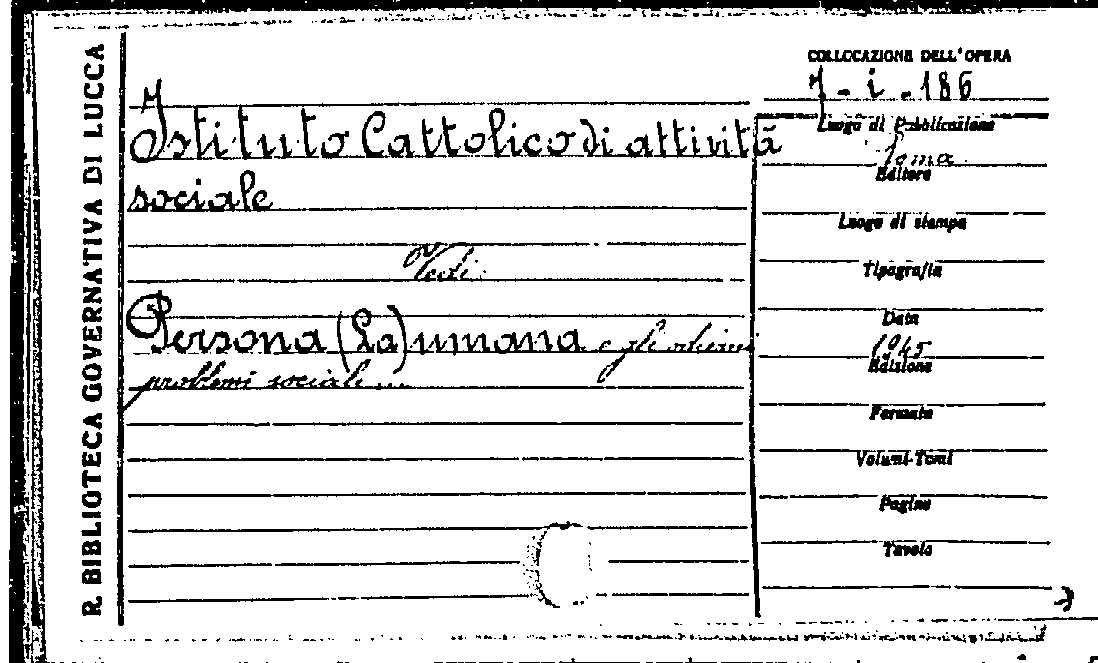 R. BIBLIOTECA GOVERNATIVA DI LUCCA
COLLOCAZIONE DELL'OPERA
7-i-186
Istituto Cattolico di attività
sociale
Vedi
Persona (La) umana e gli odierni
problemi sociali ...
Luogo di Pubblicazione
Roma
Editore
Luogo di stampa
Tipografia
Data
1945
Edizione
Formato
Volumi-Tomi
Pagine
Tavole